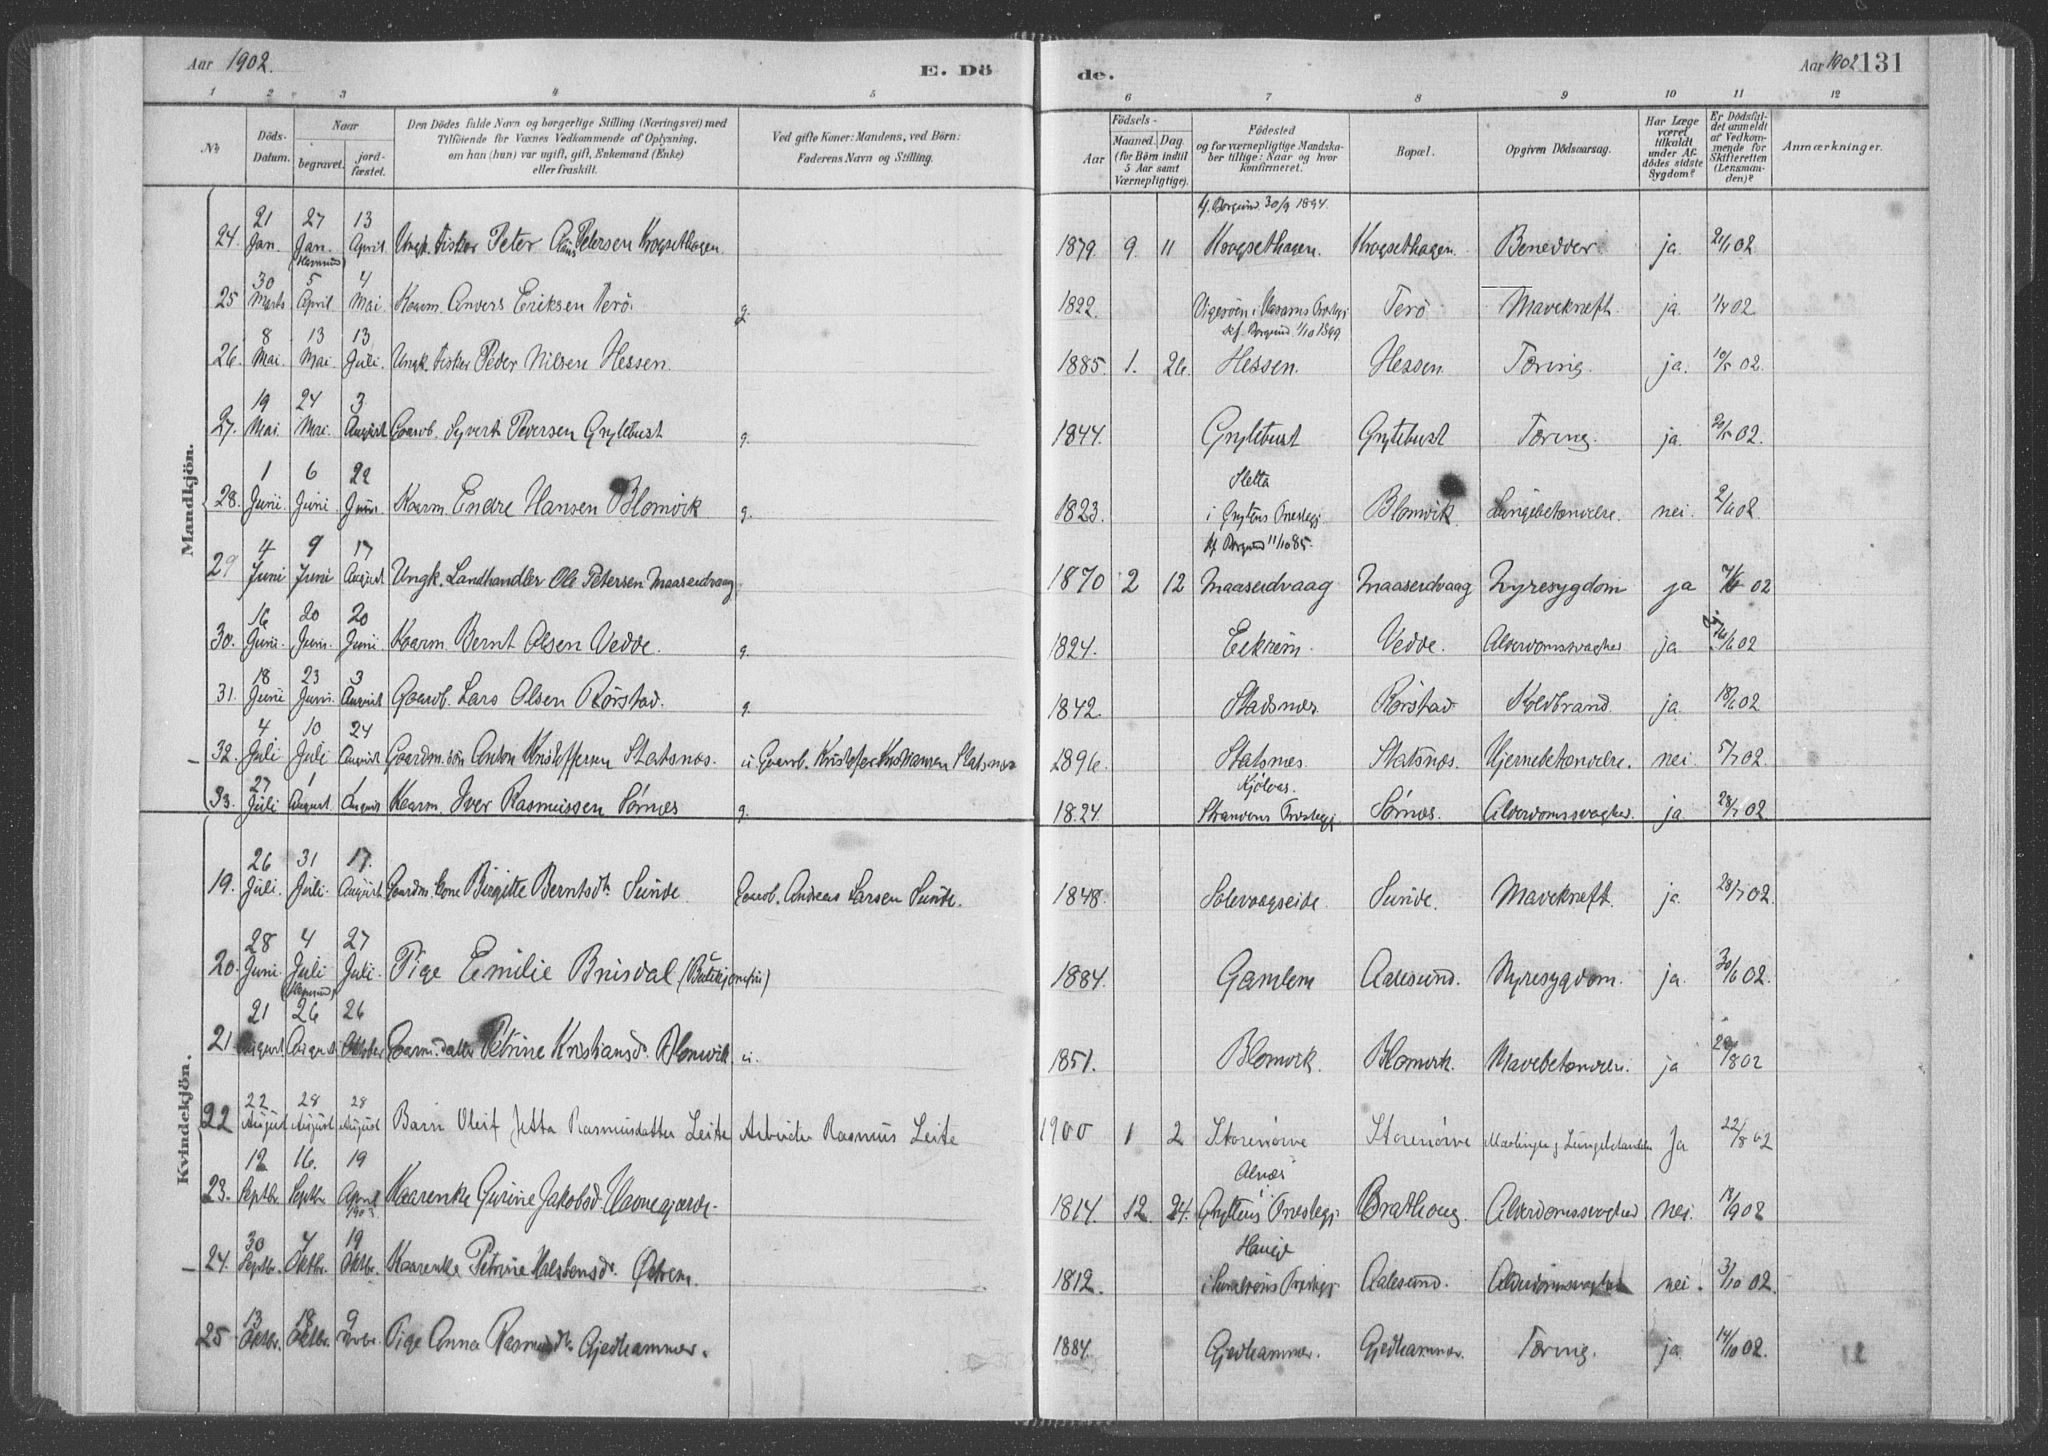 Aar 1902.
E. Dö
de.
Aar 1902 131
1 2 3 4 5 6 7 8 9 10 11 12
No
Döds-
Datum.
Naar
begravet.
jord-
fæstet.
Den Dödes fulde Navn og borgerlige Stilling (Næringsvei) med
Tilföiende for Voxnes Vedkommende af Oplysning,
om han (hun) var ugift, gift, Enkemand (Enke)
eller fraskilt.
Ved gifte Koner: Mandens, ved Börn:
Faderens Navn og Stilling.
Aar
Födsels-
Maaned. Dag.
(for Börn indtil
5 Aar samt
Værnepligtige).
Födested
og for værnepligtige Mandska-
ber tillige: Naar og hvor
konfirmeret.
Bopæl.
Opgiven Dödsaarsag.
Har Læge
været
tilkaldt
under Af-
dödes sidste
Sygdom?
Er Dödsfal-
det anmeldt
af Vedkom-
mende for
Skifteretten
(Lensman-
den)?
Anmærkninger.
Mandkjön.
kf. Borgund 30/9 1894.
24. 21 Jan. 27 Jan. 13 April Ungk. Fisker Peter Petersen Krogsethagen 1879. 9. 11 Krogsethagen. Krogsethagen. Benedder. ja. 21/1 02
25 30 Marts 5 April 4 Mai. Kaarm. Anders Eriksen Terö. g. 1822. Vigerøen i Terö Mavekræft. ja. 02
kf. Borgund 1/10 1899
26. 8 Mai. 13 Mai. 13 Juli. Ungk. Fisker Peder Nilsen Hessen. 1885. 1. 26. Hessen. Hessen Tæring. ja. 10/5 02.
27. 19 Mai. 24 Mai. 3 August Gaardb. Syvert Pedersen Grytebust g. 1844. Grytebust Grytebust Tæring. ja. 20/5 02.
28. 1 Juni. 6 Juni 22 Juni. Kaarm. Endre Hansen Blomvik. g. 1823. Sletta i Grytens Præstegj. Blomvik. Lungebetændelse. nei. 2/6 02.
kf. Borgund 11/10 85.
29 4 Juni 9 Juni 17 August Ungk. Landhandler Ole Petersen Maaseidvaag 1870 2 12 Maaseidvaag Maaseidvaag Nyresygdom ja 7/6 02
30. 16 Juni. 20 Juni. 20 Juni Kaarm. Bernt Olsen Vedde. g. 1824. Eekrem. Vedde. Alderdomssvaghed ja 16/6 02
31. 18 Juni 23 Juni. 3 August Gaardb. Lars Olsen Rörstad. g. 1842. Stadsnes. Rörstad. Koldbrand. ja. 18/6 02
32. 4 Juli 10 Juli 24 August Gaardm. sön Anton Kristoffersen Statsnæs. u Gaardb. Kristofer Kristiansen Statsnæs 1896. Statsnæs. Statsnæs. Hjernebetændelse. nei. 5/7 02.
33. 27 Juli 1 August. August Kaarm. Iver Rasmussen Sørnæs g. 1824. Kjölaas. Strandens Præstegj. Sørnæs. Alderdomssvaghed. ja 28/7 02
Kvindekjön.
19. 26 Juli. 31 Juli. 17. August Gaardm. Kone Birgitte Berntsdr. Sunde Gaardb. Andreas Larsen Sunde. 1848. Solevaagseide. Sunde. Mavekræft. ja. 28/7 02.
20. 28 Juni. 4 Juli 27 Juli. Pige Emilie Brusdal 1884. Gamlem Aalesund. Nyresygdom. ja. 30/6 02.
21 21 August 26 August 26 Oktober Gaardm. datter Petrine Kristiansdr. Blomvik u. 1851. Blomvik. Blomvik. Mavebetændelse. ja 8 02
22 22 August 28 August 28 August Barn Olcif Jetta Rasmusdatter Leite Arbeider Rasmus Leite 1900 1 2 Storenørve Storenørve Mæslinger og Lungebetændelse Ja 22/8 02
23. 12 Septbr. 16. Septbr. 19 April 1903 Kaarenke Gurine Jakobsd. Vaanegjerde. 1814. 12. 24. Alnæs i Gryttens Præstegj. Bratholg. Alderdomssvaghed. nei. 18/9 02
24. 30 Septbr. 4 Oktbr. 19 Oktbr. Kaarenke Petrine Halstensdr. Östrem. 1812. Hauge i Præstegj. Aalesund. Alderdomssvaghed nei. 3/10 02.
25 13 Oktbr. 18 Oktbr. 9 Novbr. Pige Anna Rasmusdr. Gjedhammer. 1884. Gjedhammer. Gjedhammer. Tæring. ja. 14/10 02.